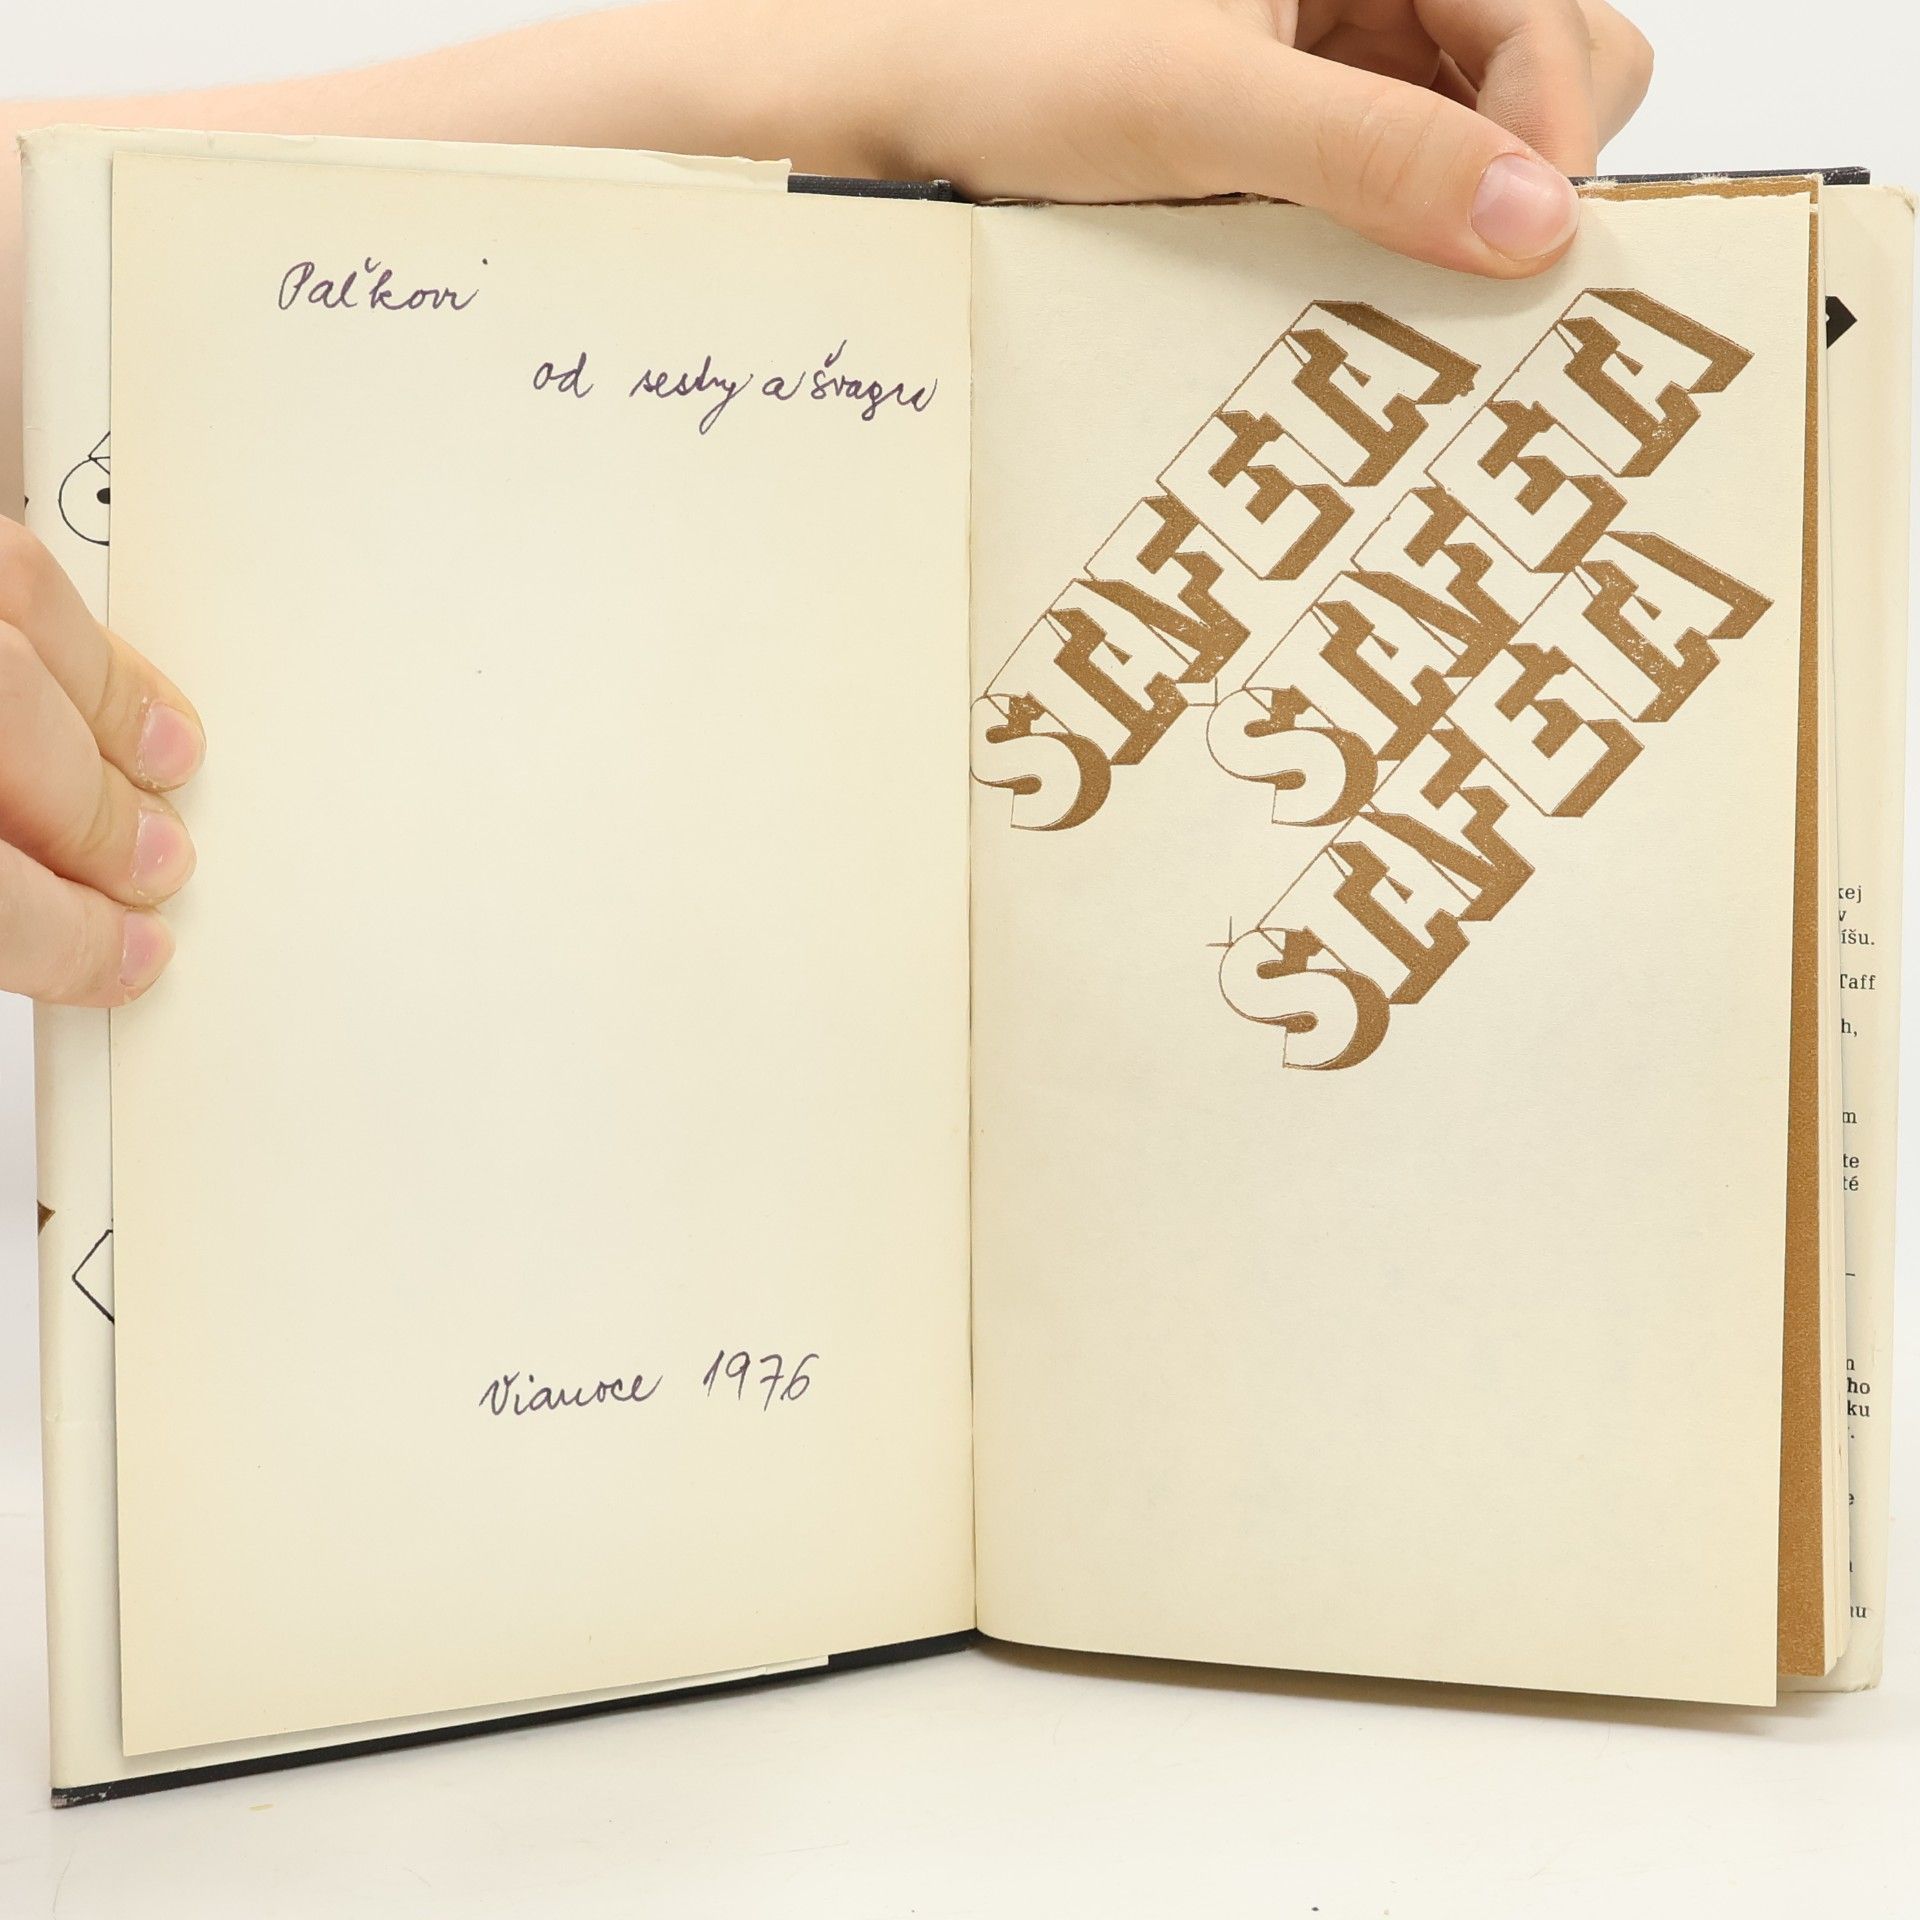 Paľkovi
od sestry a švagra
Vianoce 1976
ŠTAFETA
ŠTAFETA
ŠTAFETA
kej
v
íšu.
Taff
h,
m
te
té
—
n
ho
ku
e
nu